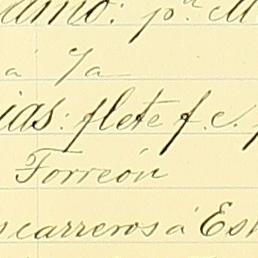 amo: pr M
á Ya
ias: flete f. c.
Torreón
carreros á Est